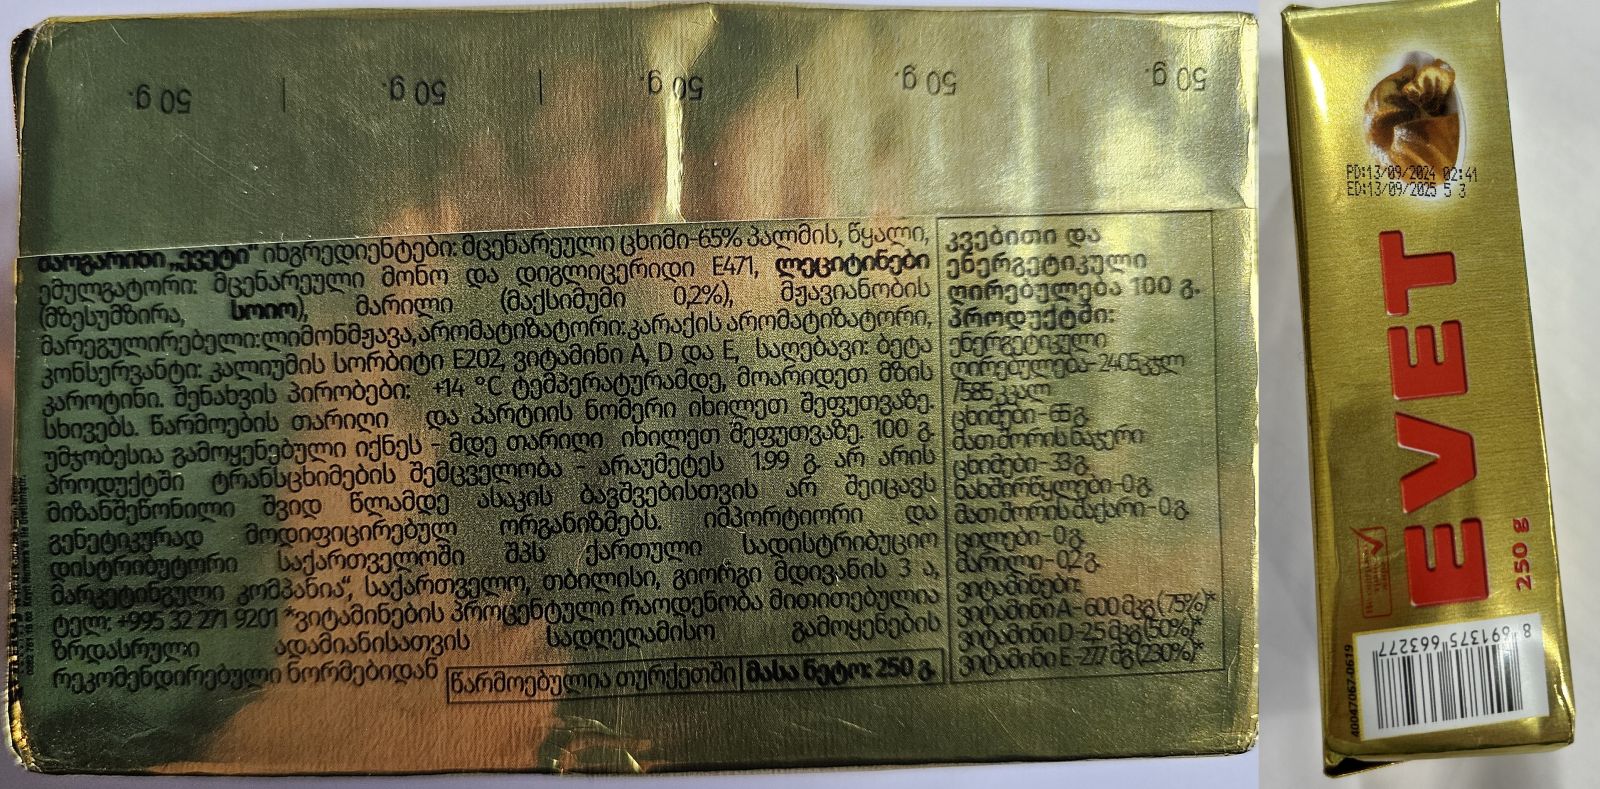 50 g.
50 g.
50 g.
50 g.
50 g.
მარგარინი „ევეტი“ ინგრედიენტები: მცენარეული ცხიმი-65% პალმის, წყალი,
ემულგატორი: მცენარეული მონო და დიგლიცერიდი E471, ლეციტინები
(მზესუმზირა, სოიო), მარილი (მაქსიმუმი 0,2%), მჟავიანობის
მარეგულირებელი:ლიმონმჟავა,არომატიზატორი:კარაქის არომატიზატორი,
კონსერვანტი: კალიუმის სორბიტი E202, ვიტამინი A, D და E, საღებავი: ბეტა
კაროტინი. შენახვის პირობები: +14 °C ტემპერატურამდე, მოარიდეთ მზის
სხივებს. წარმოების თარიღი და პარტიის ნომერი იხილეთ შეფუთვაზე.
უმჯობესია გამოყენებული იქნეს - მდე თარიღი იხილეთ შეფუთვაზე. 100 გ.
პროდუქტში ტრანსცხიმების შემცველობა - არაუმეტეს 1.99 გ. არ არის
მიზანშეწონილი შვიდ წლამდე ასაკის ბავშვებისთვის არ შეიცავს
გენეტიკურად მოდიფიცირებულ ორგანიზმებს. იმპორტიორი და
დისტრიბუტორი საქართველოში შპს ქართული სადისტრიბუციო
მარკეტინგული კომპანია“, საქართველო, თბილისი, გიორგი მდივანის 3 ა,
ტელ: +995 32 271 9201 *ვიტამინების პროცენტული რაოდენობა მითითებულია
ზრდასრული ადამიანისათვის სადღეღამისო გამოყენების
რეკომენდირებული ნორმებიდან
წარმოებულია თურქეთში
მასა ნეტო: 250 გ.
კვებითი და
ენერგეტიკული
ღირებულება 100 გ.
პროდუქტში:
ენერგეტიკული
ღირებულება-2405კჯლ
/585კკალ
ცხიმები-65გ.
მათ შორის ნაჯერი
ცხიმები-33გ.
ნახშირწყლები-0გ.
მათ შორის შაქარი-0გ.
ცილები-0გ.
მარილი-0,2გ.
ვიტამინები:
ვიტამინი A-600 მკგ (75%)*
ვიტამინი D-2,5 მკგ (50%)*
ვიტამინი E-27,7 მგ (230%)*
PD:13/09/2024 02:41
ED:13/09/2025 5 3
EVET
250 g
40047067-0619
8 691375 663277